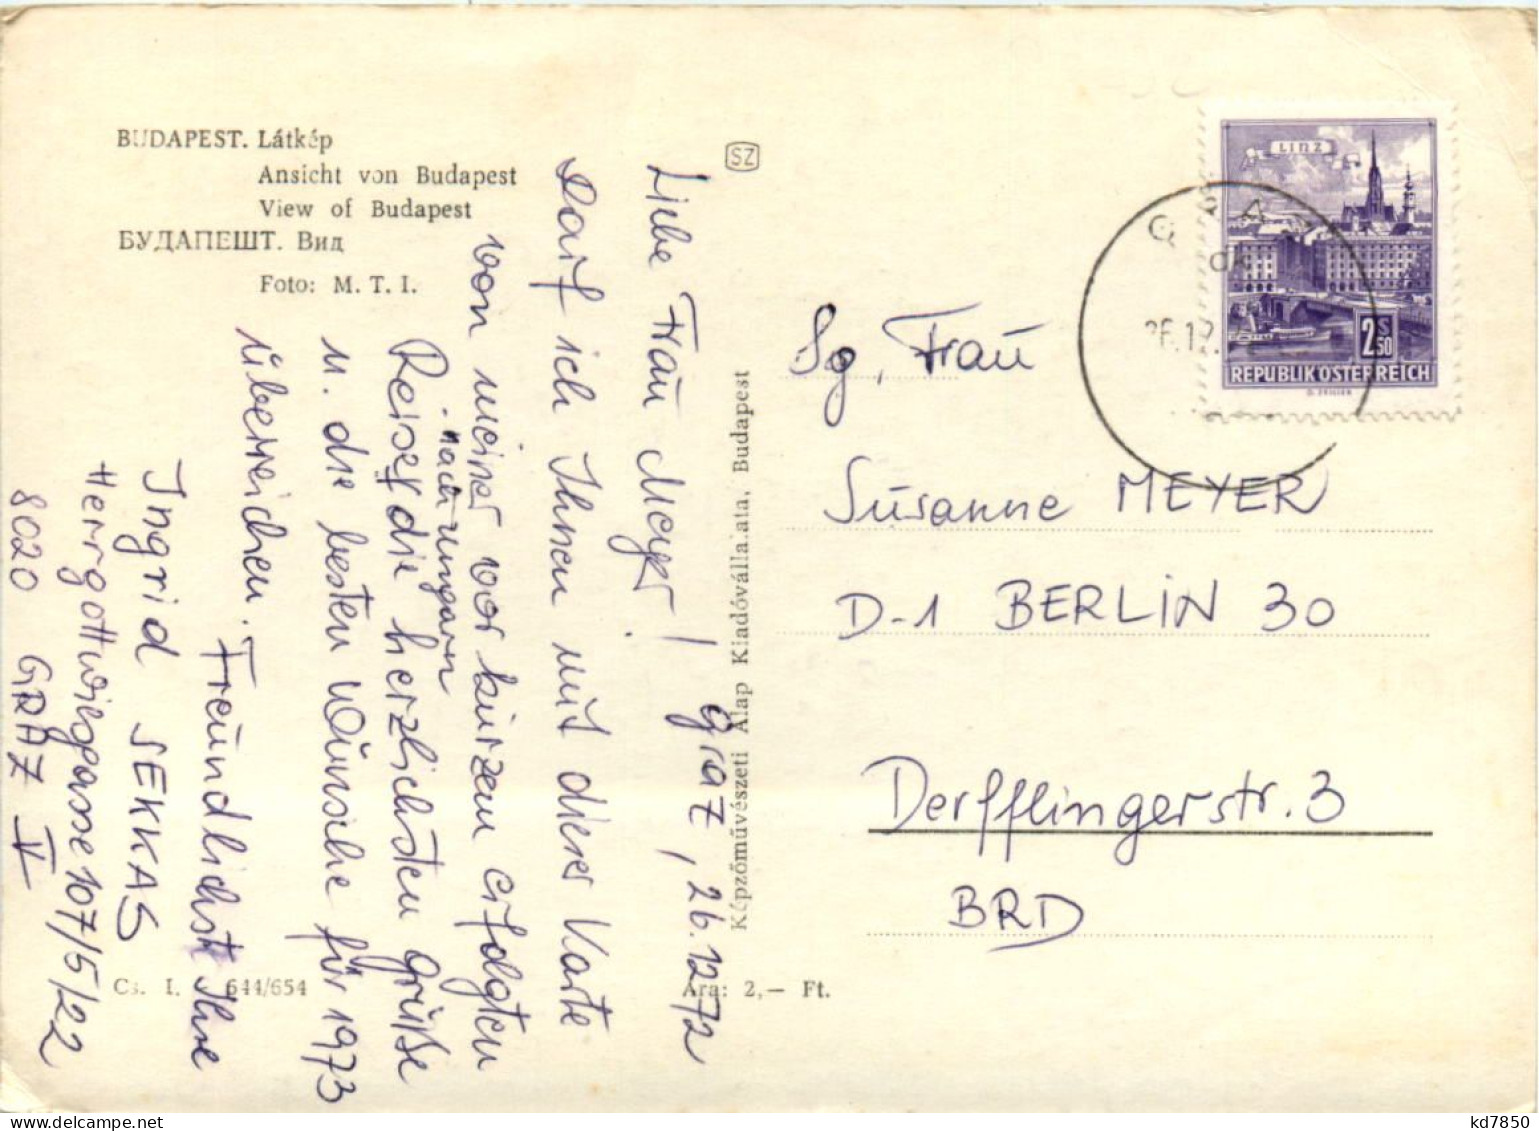 BUDAPEST. Látkép
Ansicht von Budapest
View of Budapest
БУДАПЕШТ. Вид
Foto: M. T. I.
SZ
Graz, 26.12.72
Liebe Frau Meyer!
Darf ich Ihnen mit dieser Karte
von meiner vor kurzem erfolgten
Reise nach Ungarn die herzlichsten Grüße
u. die besten Wünsche für 1973
überreichen.
Freundlichst Ihre
Ingrid SEKKAS
Herrgottwiesgasse 107/5/22
8020 GRAZ V
Képzőművészeti Alap Kiadóvállalata, Budapest
Cs. I. 644/654
Ára: 2,— Ft.
LINZ
2 S 50
REPUBLIK ÖSTERREICH
GRAZ
26.12.
Sg. Frau
Susanne MEYER
D-1 BERLIN 30
Derfflingerstr. 3
BRD
kd7850